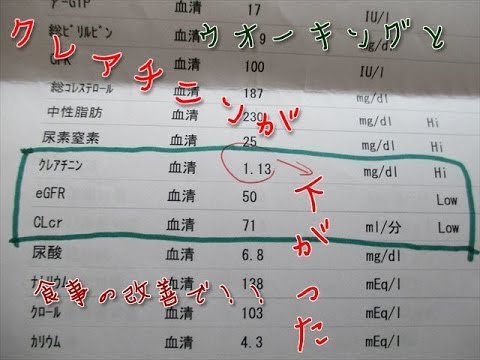 ウオーキングと
食事の改善で！！
クレアチニンが
下がった
γ-GTP 血清 17 IU/l
総ビリルビン 血清 9 mg/dl
CPK 血清 100 IU/l
総コレステロール 血清 187 mg/dl
中性脂肪 血清 230 mg/dl Hi
尿素窒素 血清 25 mg/dl Hi
クレアチニン 血清 1.13 mg/dl Hi
eGFR 血清 50 Low
CLcr 血清 71 ml/分 Low
尿酸 血清 6.8 mg/dl
ナトリウム 血清 138 mEq/l
クロール 血清 103 mEq/l
カリウム 血清 4.3 mEq/l